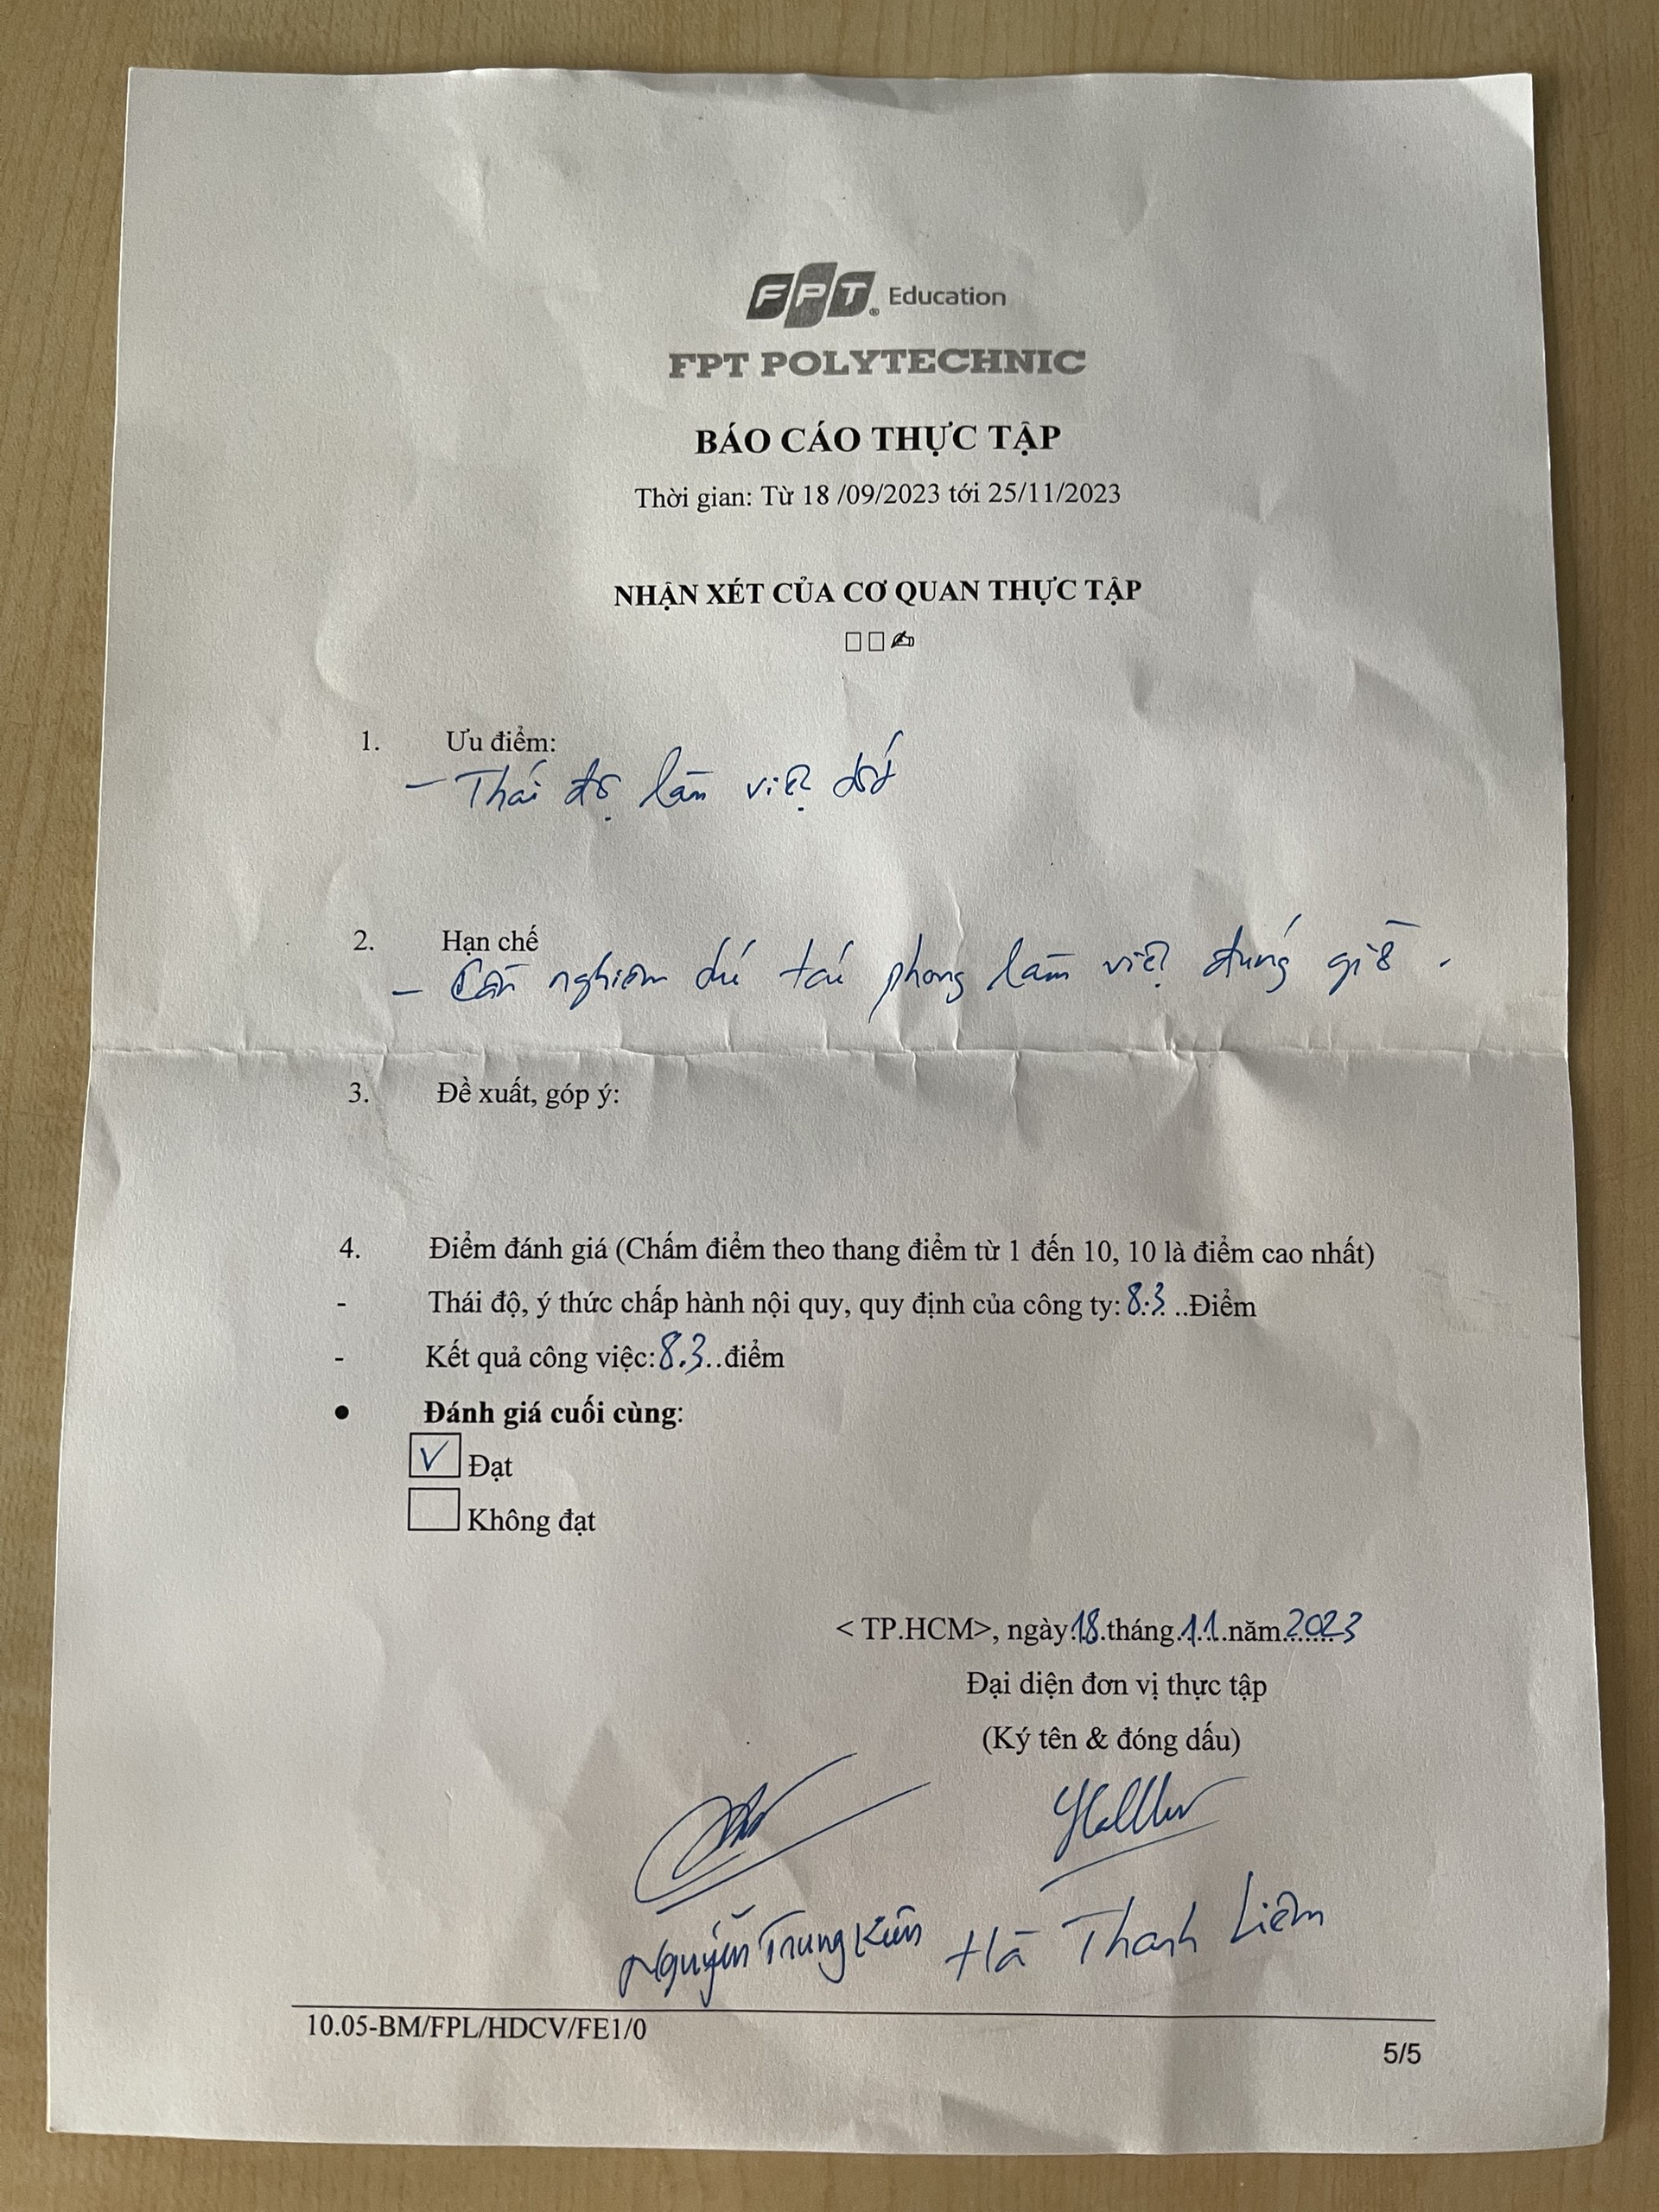 FPT Education
FPT POLYTECHNIC
BÁO CÁO THỰC TẬP
Thời gian: Từ 18 /09/2023 tới 25/11/2023
NHẬN XÉT CỦA CƠ QUAN THỰC TẬP
□□✍
1. Ưu điểm:
- Thái độ làm việc tốt
2. Hạn chế
- Cần nghiêm túc tác phong làm việc đúng giờ.
3. Đề xuất, góp ý:
4. Điểm đánh giá (Chấm điểm theo thang điểm từ 1 đến 10, 10 là điểm cao nhất)
- Thái độ, ý thức chấp hành nội quy, quy định của công ty: 8.3 ..Điểm
- Kết quả công việc: 8.3..điểm
● Đánh giá cuối cùng:
V Đạt
Không đạt
< TP.HCM>, ngày 18 tháng 11 năm 2023
Đại diện đơn vị thực tập
(Ký tên & đóng dấu)
Nguyễn Trung Kiên Hà Thanh Liêm
10.05-BM/FPL/HDCV/FE1/0
5/5